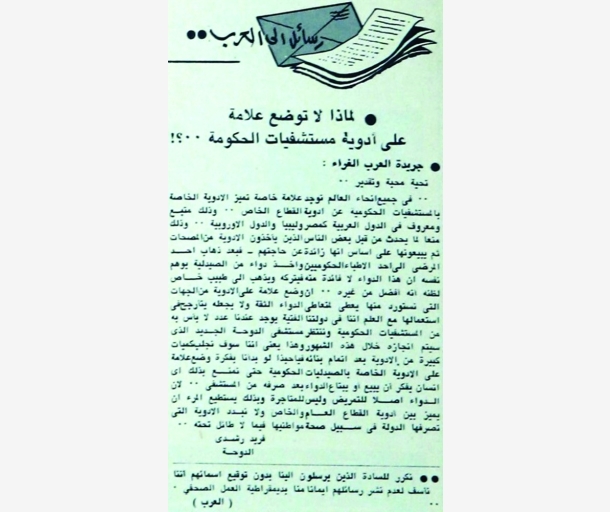 رسائل الى العرب ••
● لماذا لا توضع علامة
على أدوية مستشفيات الحكومة ٠٠؟!
● جريدة العرب الغراء :
تحية محبة وتقدير ٠٠
٠٠ فى جميع انحاء العالم توجد علامة خاصة تميز الادوية الخاصة
بالمستشفيات الحكومية عن ادوية القطاع الخاص ٠٠ وذلك متبع
ومعروف فى الدول العربية كمصر وليبيا والدول الاوروبية ٠٠ وذلك
منعا لما يحدث من قبل بعض الناس الذين ياخذون الادوية من المصحات
ثم يبيعونها على اساس انها زائدة عن حاجتهم ـ فبعد ذهاب احد
المرضى الى احد الاطباء الحكوميين واخذ دواء من الصيدلية يوهم
نفسه ان هذا الدواء لا فائدة منه فيتركه ويذهب الى طبيب خاص
لظنه انه افضل من غيره ٠٠ ان وضع علامة على الادوية من الجهات
التى نستورد منها يعطى لمتعاطى الدواء الثقة ولا يجعله يتارجح فى
استعمالها مع العلم اننا فى دولتنا الفتية يوجد عندنا عدد لا باس به
من المستشفيات الحكومية وننتظر مستشفى الدوحة الجديد الذى
سيتم انجازه خلال هذه الشهور وهذا يعنى اننا سوف نجلب كميات
كبيرة من الادوية بعد اتمام بنائه فياحبذا لو بدانا بفكرة وضع علامة
على الادوية الخاصة بالصيدليات الحكومية حتى نمنع بذلك اى
انسان يفكر أن يبيع أو يبتاع الدواء بعد صرفه من المستشفى ٠٠ لان
الدواء اصلا للتمريض وليس للمتاجرة وبذلك يستطيع المرء ان
يميز بين أدوية القطاع العام والخاص ولا نبدد الادوية التى
تصرفها الدولة فى سبيل صحة مواطنيها فيما لا طائل تحته ٠٠
فريد رشدى
الدوحة
●● نكرر للسادة الذين يرسلون الينا بدون توقيع اسمائهم أننا
ناسف لعدم نشر رسائلهم ايمانا منا بديمقراطية العمل الصحفي ٠
٠٠ ( العرب )